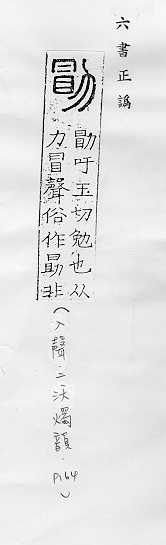 六書正譌
勖
勖吁玉切勉也从
力冒聲俗作勗非
(入聲．二沃燭韻．P.164)